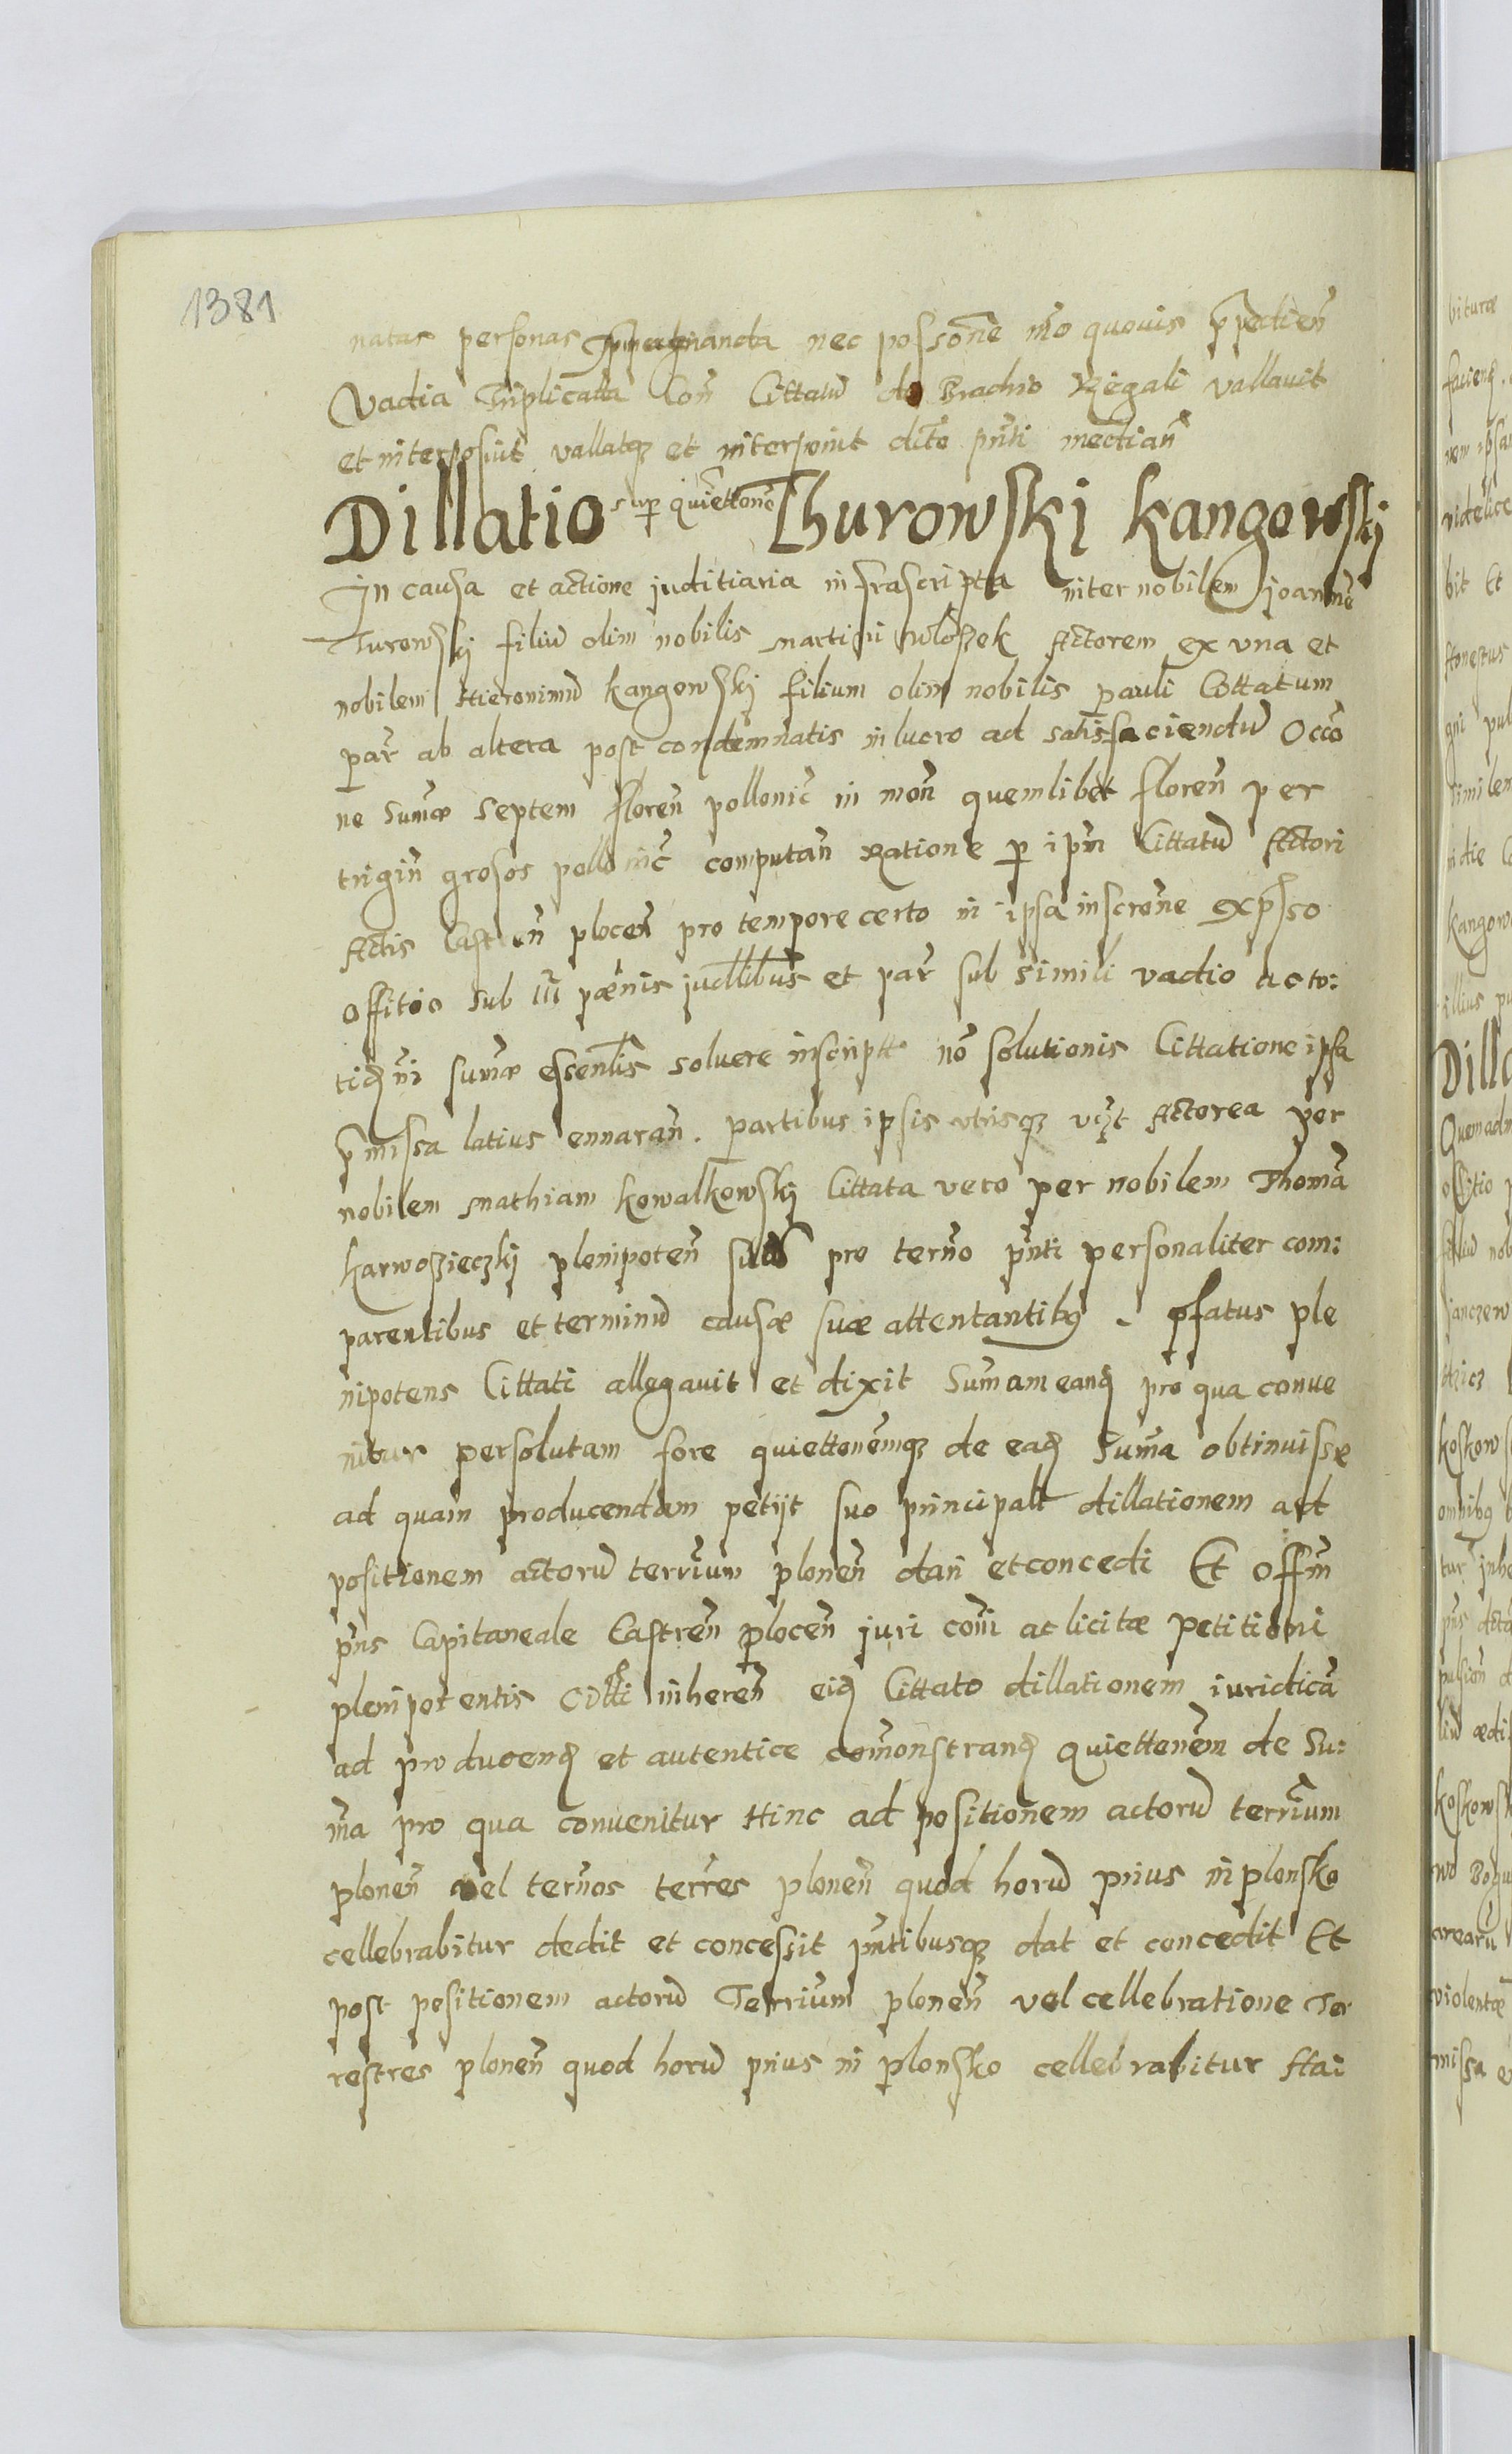 1381
natas personas impugnanda nec possōne īmo quouis p̄pedien̄
Vadia Triplicatta Con̄ Cittatū de Brachio Regali vallauit
et interposuit vallatqȝ et interponit dic̄to pn̄ti median̄
Dillatio sup̱ quiettonē Thurowski Kangowskj
In causa et actione juditiaria infrascripta inter nobilem Joannē
Turowskj filiū olim nobilis Martini Włoszek Actorem ex vna et
nobilem Hieronimū Kangowskj filium olim nobilis Pauli Cittatum
par̄ ab altera post condemnatis in lucro ad satisfaciendū Occō
ne sum̄æ septem floren̄ pollonic̄ in mon̄ quemlibet floren̄ per
trigin̄ grosos pollonic̄ computan̄ Ratione p̱ ipm̄ Cittatū Actori
Actis Castren̄ plocen̄ pro tempore certo in ipsa inscrōne expsso
offitio sub III pœnis judlībus et par̄ sub simili vadio acto:
sum̄æ essenlīs soluere inscriptto nō solutionis Cittatione ipsa
p̄missa latius ennaran̄. partibus ipsis vtrisqȝ vizt Actorea per
nobilem Mathiam Kowalkowskj Cittata vero per nobilem Thomā
Karwosieczkj plenipoten̄ suos pro tern̄o pn̄ti personaliter com:
parentibus et terminū causæ suæ attentantibȝ. p̄fatus ple
nipotens Cittati allegauit et dixit Sum̄am eand̄ pro qua conue
nitur persolutam fore quiettonēmqȝ de ead̄ Sum̄a obtinuisse
ad quam producendam petijt suo principali dillationem ad
positionem actorū terrīum plonen̄ dari et concedi Et Offm̄
pn̄s Capitaneale Castren̄ plocen̄ juri com̄i ac licitæ petitioni
plenipotentis Citti inheren̄ eid̄ Cittato dillationem iuridicā
ad producend̄ et autentice com̄onstrand̄ quiettonēm de Su:
m̄a pro qua conuenitur Hinc ad positionem actorū terrīum
plonen̄ vel tern̄os terrēs plonen̄ quod horū prius in plonsko
cellebrabitur dedit et concessit pn̄tibusqȝ dat et concedit Et
post positionem actorū Terrīum plonen̄ vel cellebratione Ter
restres plonen̄ quod horū prius in plonsko cellebrabitur